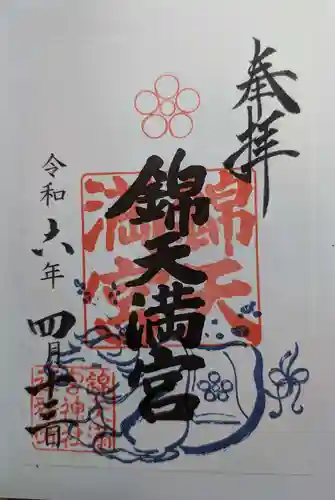 奉拝
錦天満宮
令和六年
四月十三日
錦天
満宮